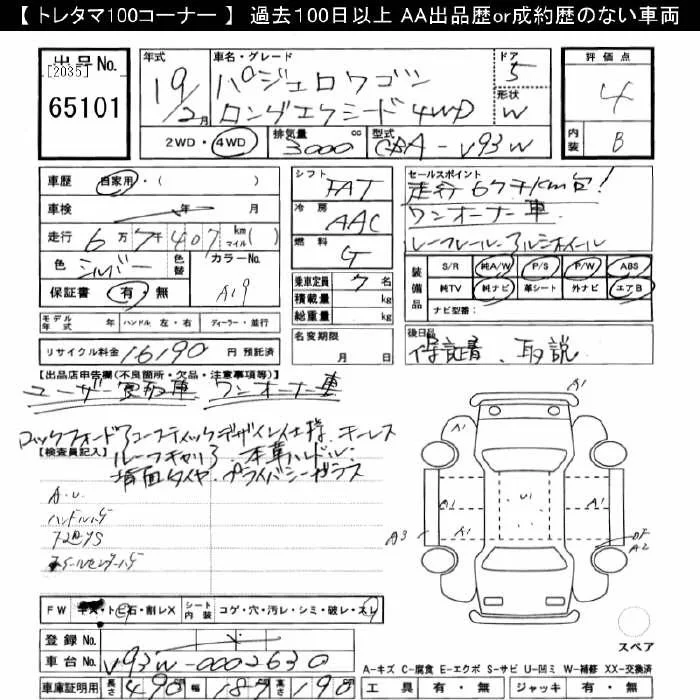 【 トレタマ100コーナー 】 過去100日以上 AA出品歴or成約歴のない車両
出品No.
[2035]
65101
年式
19/2月
車名・グレード
パジェロワゴン
ロングエクシード4WD
ドア
5
形状
W
評価点
4
内装
B
2WD・4WD
排気量
3000
cc
型式
CBA-V93W
車歴
自家用・( )
車検
年 月
走行
6万7千407
km
マイル
( )
色
シルバー
色替
カラーNo.
A19
保証書
有・無
モデル年式
年
ハンドル
左・右
ディーラー・並行
リサイクル料金
16190
円 預託済
シフト
FAT
冷房
AAC
燃料
G
乗車定員
7名
積載量
kg
総重量
kg
名変期限
月 日
セールスポイント
走行67千km台!
ワンオーナー車
ルーフレール・アルミホイール
装備品
S/R
純A/W
P/S
P/W
ABS
純TV
純ナビ
革シート
外ナビ
エアB
ナビ型番:
後日品
保証書、取説
【出品店申告欄(不良箇所・欠品・注意事項等)】
ユーザー買取車 ワンオーナー車
ロックフォードアコースティックデザイン仕様 キーレス
ルーフキャリア 本革ハンドル
背面タイヤ・プライバシーガラス
【検査員記入】
A.U.
ハンドルハゲ
F W
キズ・トビ石・割レX
シート内装
コゲ・穴・汚レ・シミ・破レ・スレ
登録 No.
車台 No.
V93W-0002630
車庫証明用
長さ
490
幅
187
高さ
190
A1
A1
A1
A1
A3
U1
A2
A1
スペア
A-キズ C-腐食 E-エクボ S-サビ U-凹ミ W-補修 XX-交換済
工具
有・無
ジャッキ
有・無